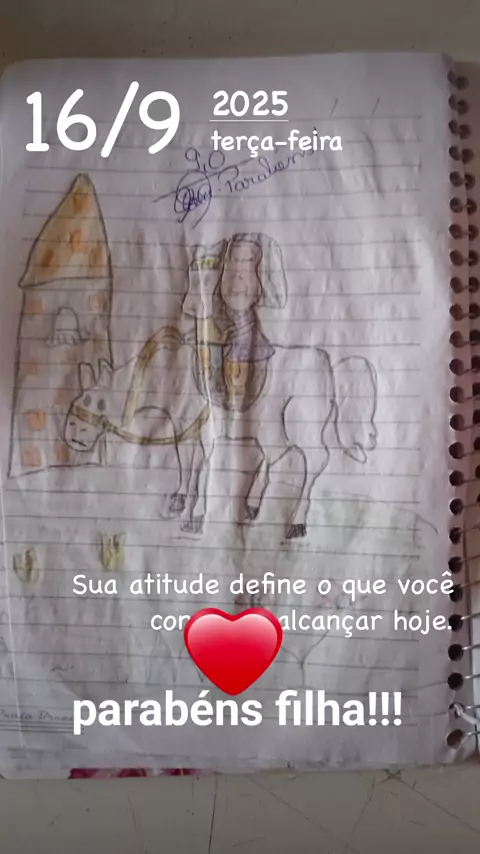 16/9
2025
terça-feira
9,0
Parabéns
Sua atitude define o que você
alcançar hoje.
parabéns filha!!!